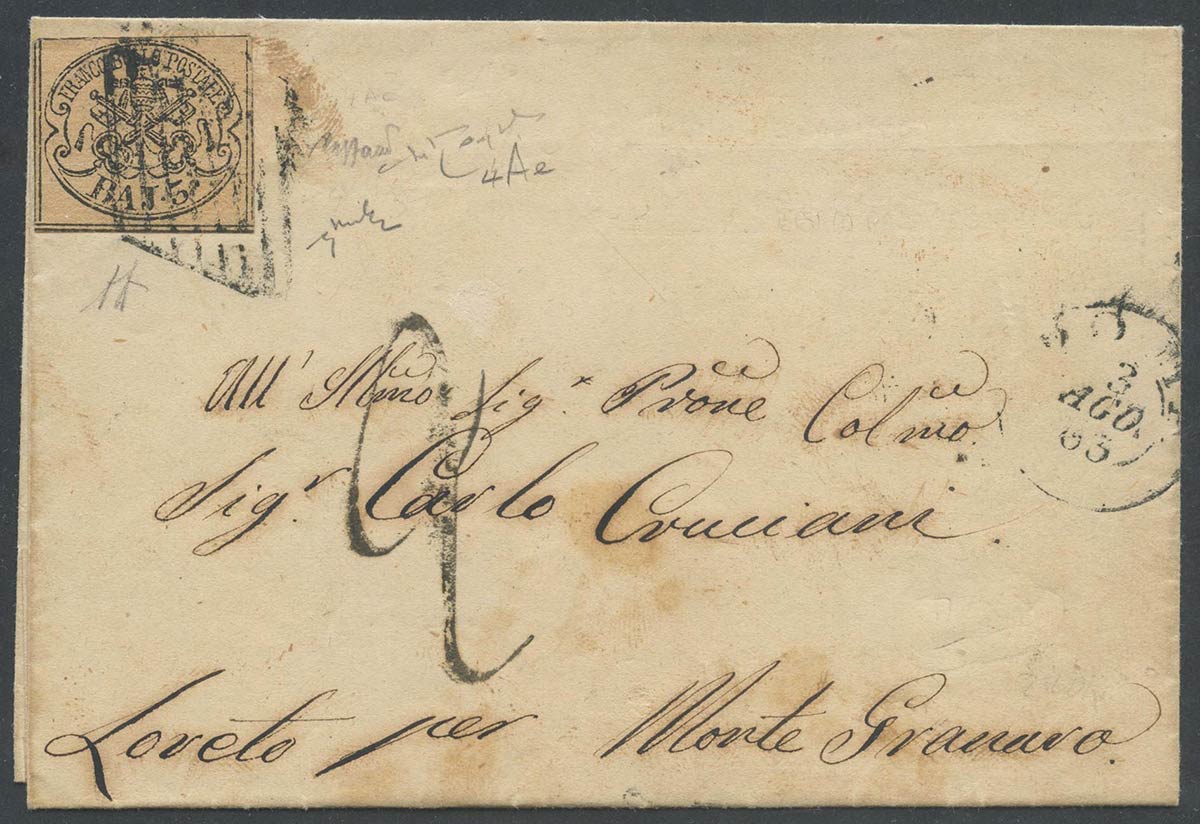 FRANCO BOLLO POSTALE
BAJ. 5
4Ae
3
AGO.
63
All' Illmo Sigr Prone Colmo
Sigr Carlo Cruciani.
Loreto per Monte Granaro.